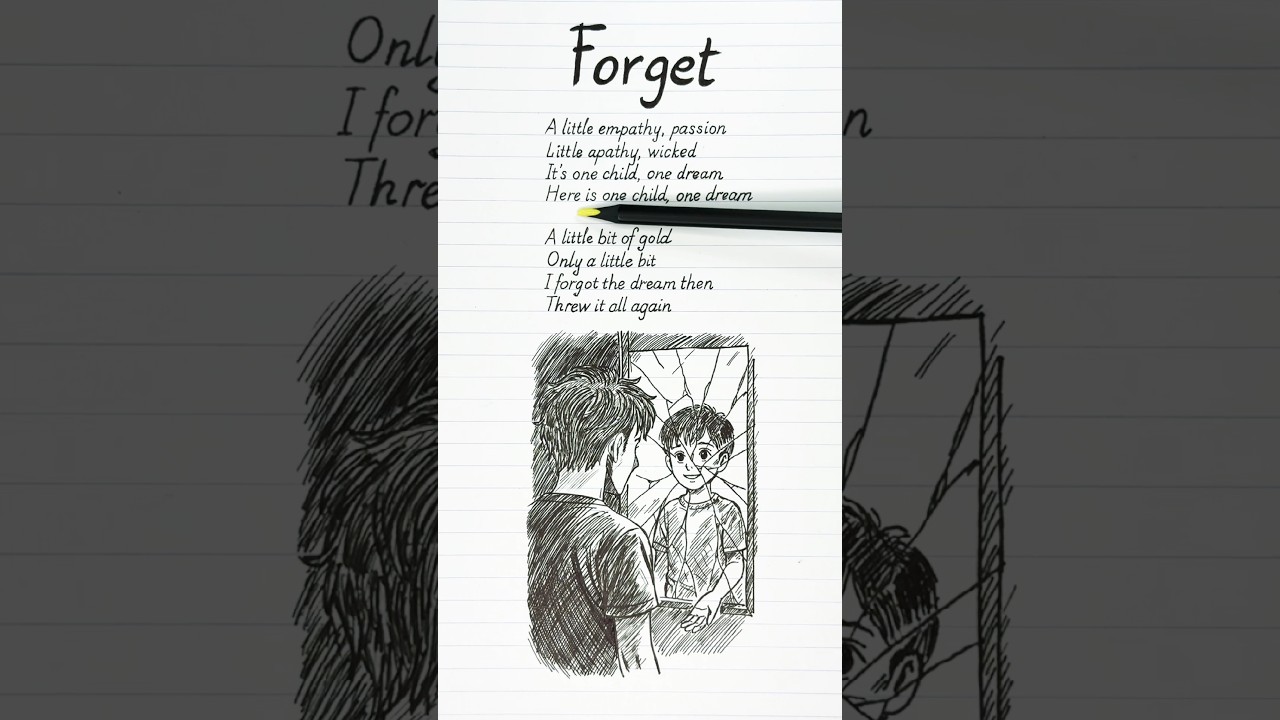 Forget
A little empathy, passion
Little apathy, wicked
It's one child, one dream
Here is one child, one dream
A little bit of gold
Only a little bit
I forgot the dream then
Threw it all again
Onl
I for
Thre
n